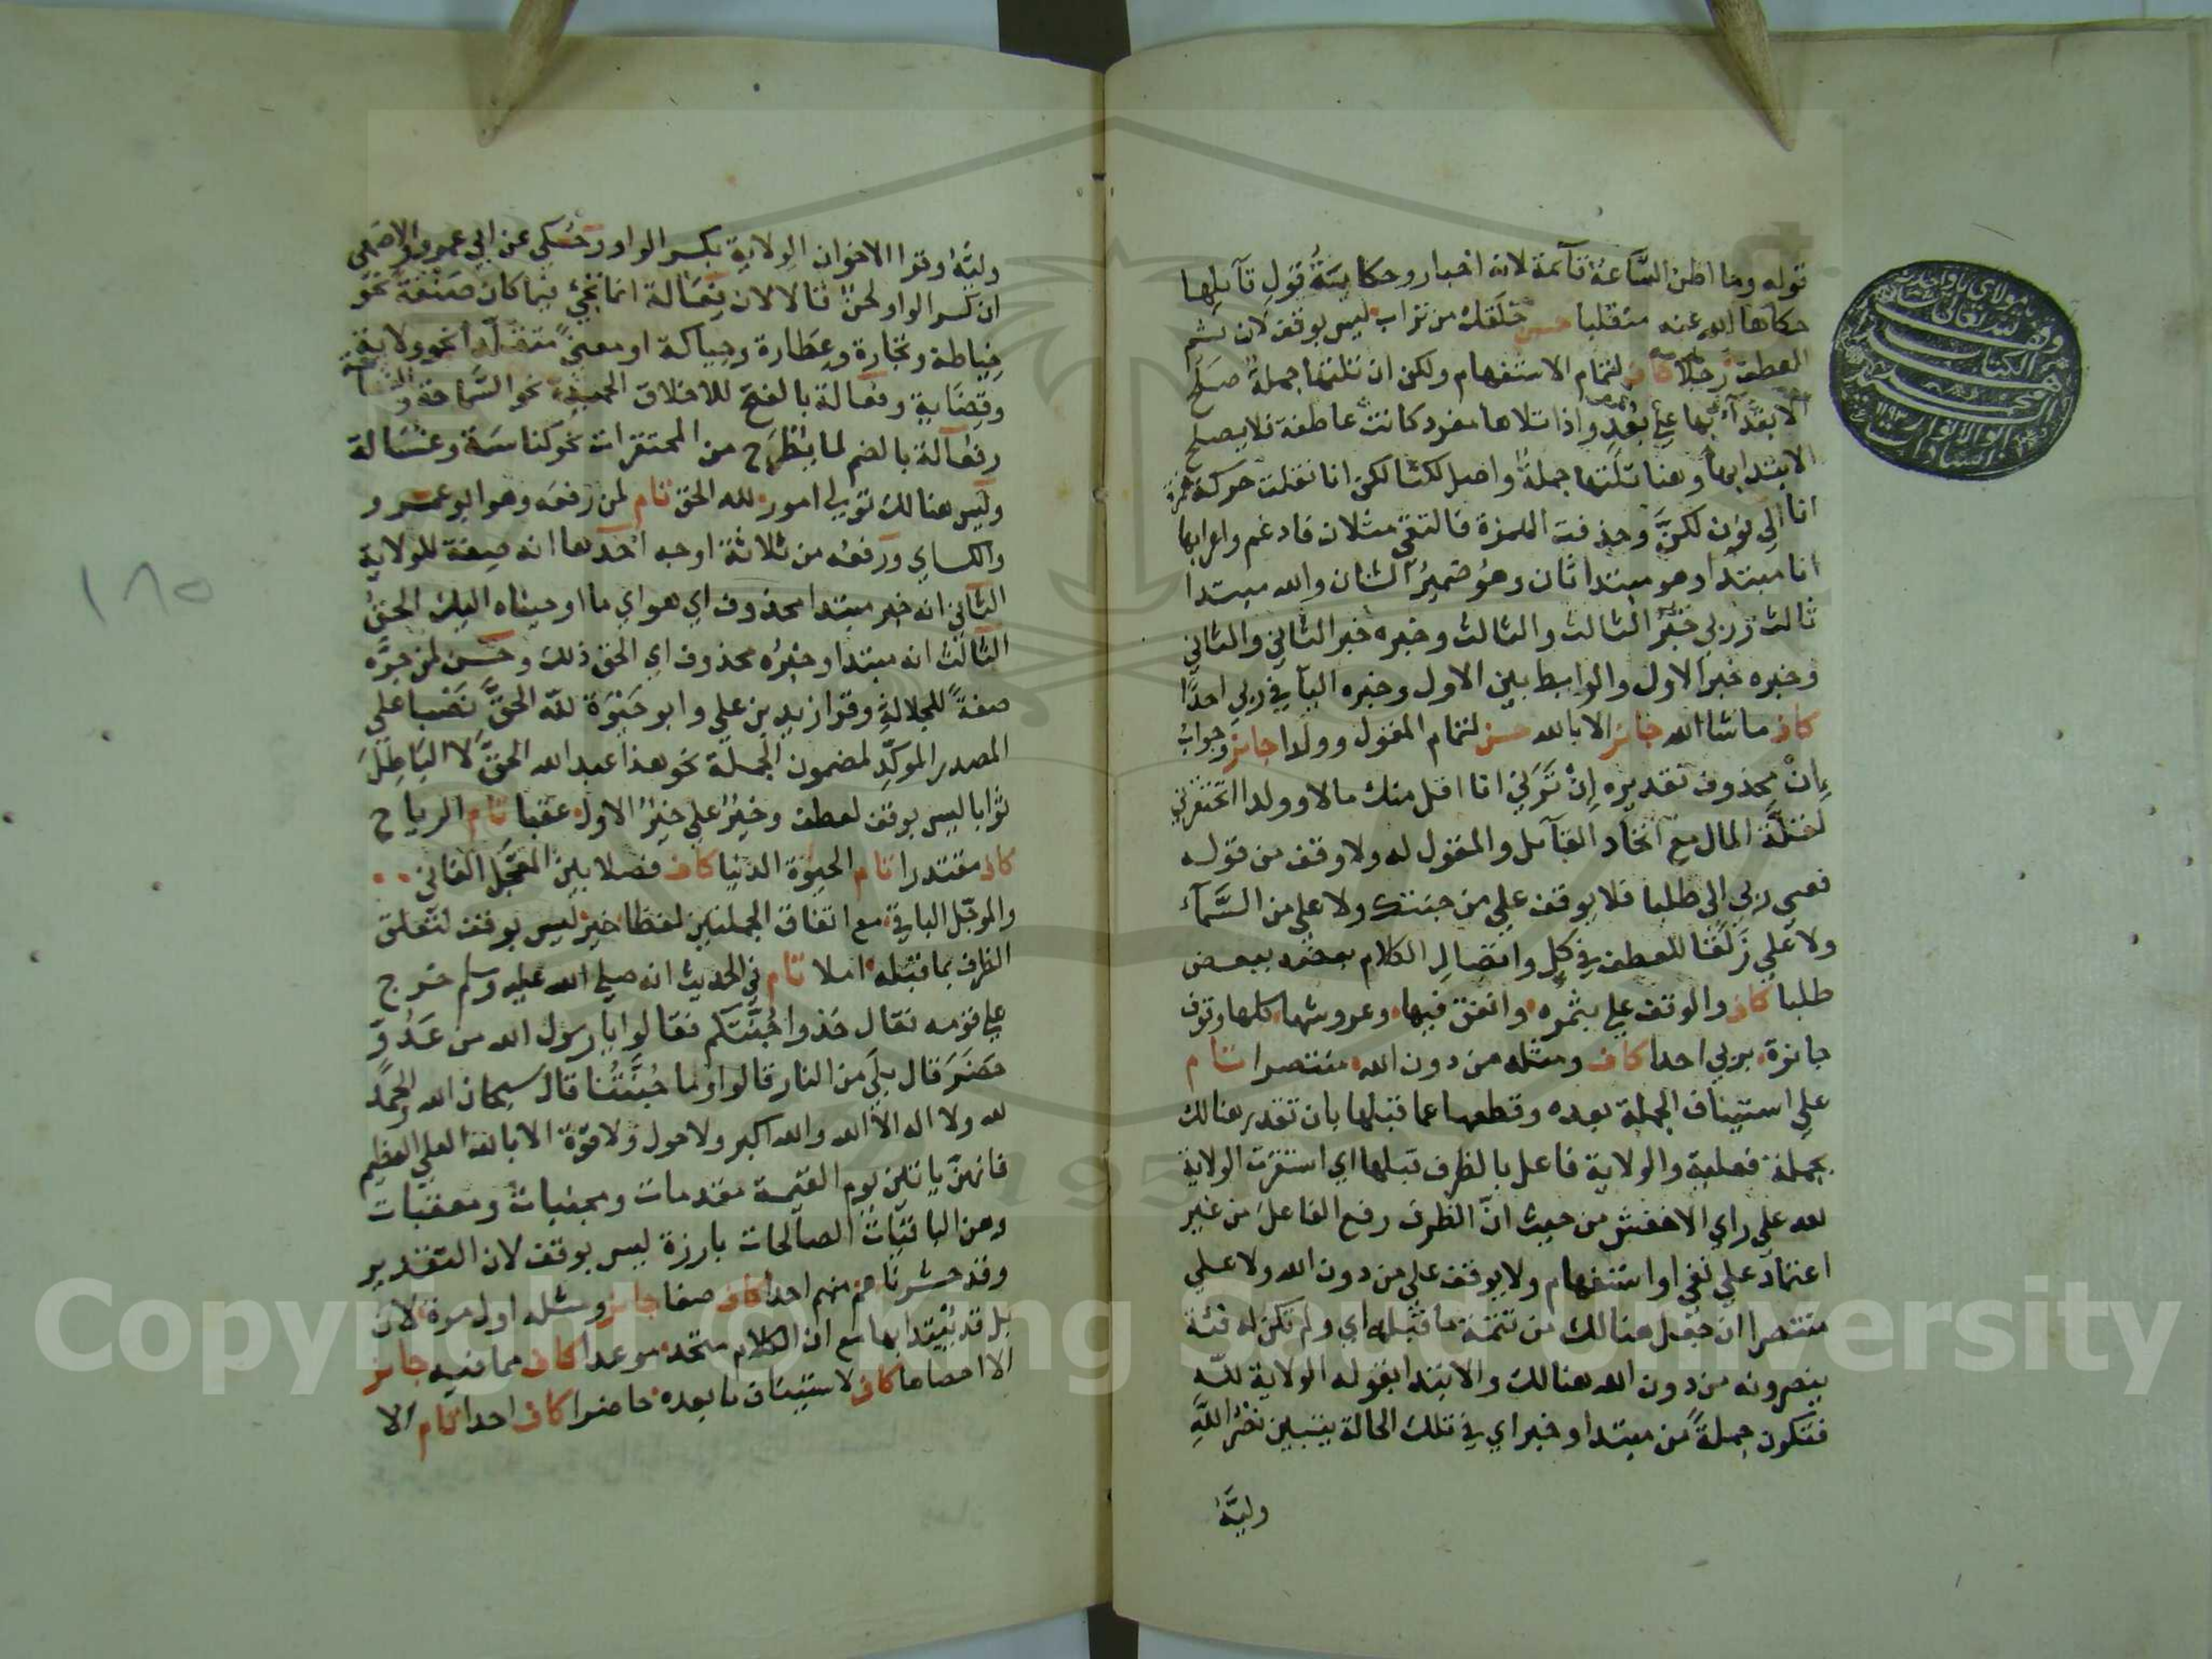 قوله وما اظن السَّاعة قآئمة لانه اخبار وحكاية قول قآئلها
حكاها الله عنه منقلبا حسن خلقك من تراب ليس بوقف لان ثم
للعطف رجلا كاف لتمام الاستفهام ولكن ان تلتها جملة صلح
الابتدآء بها علي بُعْدٍ واذا تلاها مفرد كانت عاطفة فلا يصلح
الابتدا بها وهنا تلتها جملةٌ واصل لكنا لكن انا نقلت حركة همزة
انا الي نون لكنَّ وحذفت الهمزة فالتقي مثلان فادغم واعرابها
انا مبتدا وهو مبتدا ثان وهُو ضميرُ الشان والله مبتدا
ثالث وربي خبرُ الثالث والثالث وخبره خبر الثاني والثاني
وخبره خبر الاول والرابط بين الاول وخبره اليآ في ربي احدًا
كاف ما شا الله جائز الا بالله حسن لتمام المقول وولدا جائز وجواب
إنْ محذوف تقديره إنْ تَرَنِي انا اقل منك مالا وولدا اتحتقرني
لقلَّة المال مع اتحاد القآئل والمقول له ولا وقف من قوله
فعسي ربي الي طلبا فلا يوقف علي من جنتك ولا علي من السَّمآء
ولا علي زَلَقًا للعطف في كلٍ واتصالِ الكلام بعضه ببعض
طلبا كاف والوقف علي بثمره وانفق فيها وعروشها كلها وقوف
جائزة بربي احدا كاف ومثله من دون الله منتصرا تام
علي استيناف الجملة بعده وقطعها عما قبلها بان تقدر هنالك
بجملة فعلية والولاية فاعل بالظرف قبلها اي استقرت الولاية
لله علي راي الاخفش من حيث انَّ الظرف رفع الفاعلَ من غير
اعتماد علي نفي او استفهام ولا يوقف علي من دون الله ولا علي
منتصرا ان جعل هنالك من تتمة ما قبله اي ولم تكن له فئة
ينصرونه من دون الله هنالك والابتدا بقوله الولاية لله
فتكون جملةً من مبتدا وخبر اي في تلك الحالة يتبين نصْرُ اللَّهِ
وليَّهُ
وليَّهُ وقرا الاخوان الِولاية بكسر الواو وحُكي عن ابي عمرو والاصمعي
ان كسر الواو لحنٌ قالا لان فِعَالة انما تجيء فيما كان صَنْعَةً نحو
خِياطة وتجارة وعِطارة وحِياكة او معنيً متقلَّدا نحو ولاية
وقِضَاية وفَعَالة بالفتح للاخلاق الحميدة نحو السَّماحة و
وفُعَالة بالضم لما يُطْرَح من المحتقرات نحو كناسَة وغُسَالة
وليس هنالك تولي امور لله الحق تام لمن رفعَه وهو ابو عمرو
والكساي ورفعُه من ثلاثة اوجه احدها انه صِفة للولاية
الثاني انه خبر مبتدا محذوف اي هو اي ما اوحيناه اليك الحقُ
الثالث انه مبتدا وخبرُه محذوف اي الحق ذلك وحسن لمن جرَّه
صفةً للجلالة وقرا زيد بن علي وابو حَيْوَة لله الحقَّ نَصْبا علي
المصدر الموكِّد لمضمون الجملة نحو هذا عبد الله الحقَّ لا الباطِلَ
ثوابا ليس بوقف لعطف وخيرٌ علي خيرُ الاول عقبا تام الرياح
كاف مقتدرا تام الحيوة الدنيا كاف فصلا بين المعَّجل الفاني
والموجّل الباقي مع اتفاق الجملتين لفظا خير ليس بوقف لتعلق
الظرف بما قبله املا تام في الحديث انه صلي الله عليه وسلم خرج
علي قومه فقال خذوا جُنَّتكم فقالوا يا رسول الله من عَدُوّ
حضَرَ قال بلي من النار قالوا وما جُنَّتُنا قال سبحان الله والحمد
لله ولا اله الا الله والله اكبر ولا حول ولا قوّة الا بالله العلي العظيم
فانهنّ ياتين يوم القيمة مقدمات ومجنبات ومعقبات
وهن الباقيَات الصآلحات بارزة ليس بوقف لان التقدير
وقد حشرنا هم منهم احدا كاف صفا جائز ومثله اول مرة لان
بل قد يُبْتدا بها مع ان الكلام متحد موعدا كاف مما فيه جائز
الا احصاها كاف لاستيناف ما بعده حاضرا كاف احدا تام الا
١٨٥
وقف
الكتاب
١١٩٣
Copyright © King Saud University
1957